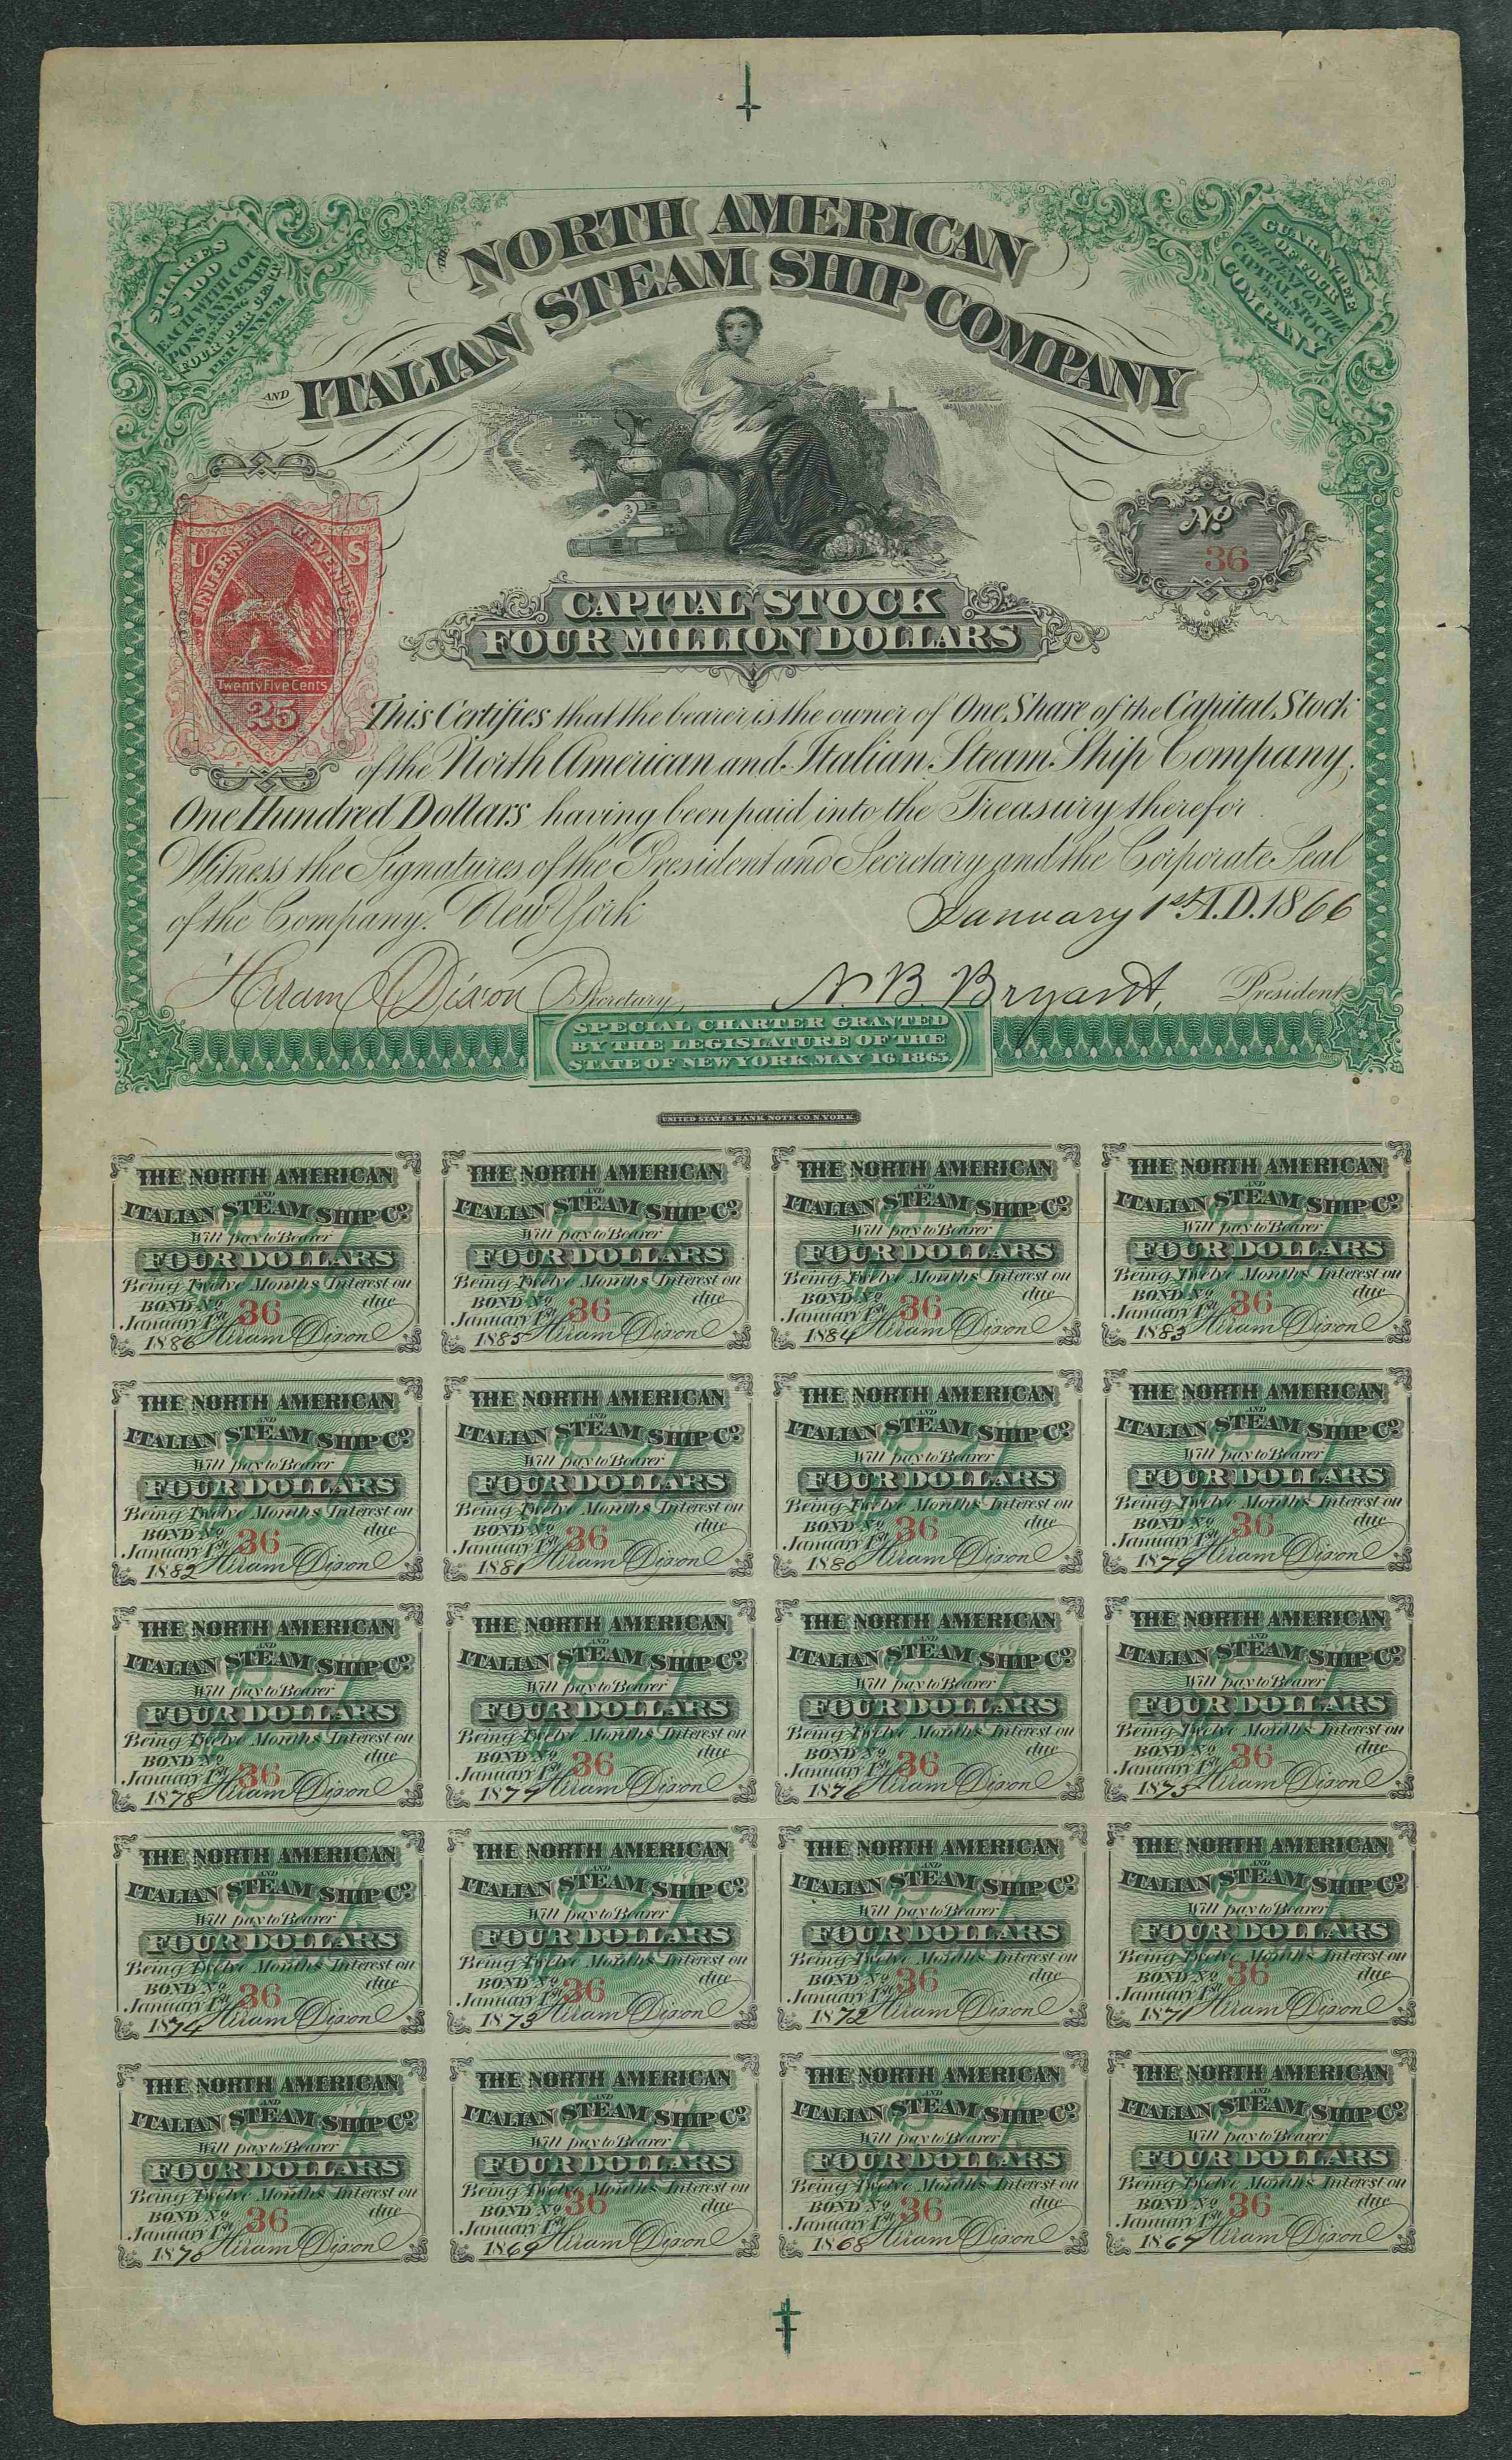 SHARES
$100
EACH WITH COU
PONS ANNEXED
BEARING
FOUR PER CENT
PER ANNUM
THE NORTH AMERICAN
AND ITALIAN STEAM SHIP COMPANY
GUARANTEE
OF FOUR
PER CENT ON THE
CAPITAL STOCK
BY THE
COMPANY
U S
INTERNAL REVENUE
Twenty Five Cents
25
No
36
CAPITAL STOCK
FOUR MILLION DOLLARS
This Certifies that the bearer is the owner of One Share of the Capital Stock
of the North American and Italian Steam Ship Company,
One Hundred Dollars having been paid into the Treasury therefor.
Witness the Signatures of the President and Secretary and the Corporate Seal
of the Company. New York January 1st A.D. 1866
Hiram Dixon Secretary, N. B. Bryant, President
SPECIAL CHARTER GRANTED
BY THE LEGISLATURE OF THE
STATE OF NEW YORK MAY 16 1865.
UNITED STATES BANK NOTE CO. N. YORK
THE NORTH AMERICAN
AND
ITALIAN STEAM SHIP Co.
Will pay to Bearer
FOUR DOLLARS
Being Twelve Months Interest on
BOND No 36 due
January 1st
1886 Hiram Dixon
THE NORTH AMERICAN
AND
ITALIAN STEAM SHIP Co.
Will pay to Bearer
FOUR DOLLARS
Being Twelve Months Interest on
BOND No 36 due
January 1st
1885 Hiram Dixon
THE NORTH AMERICAN
AND
ITALIAN STEAM SHIP Co.
Will pay to Bearer
FOUR DOLLARS
Being Twelve Months Interest on
BOND No 36 due
January 1st
1884 Hiram Dixon
THE NORTH AMERICAN
AND
ITALIAN STEAM SHIP Co.
Will pay to Bearer
FOUR DOLLARS
Being Twelve Months Interest on
BOND No 36 due
January 1st
1883 Hiram Dixon
THE NORTH AMERICAN
AND
ITALIAN STEAM SHIP Co.
Will pay to Bearer
FOUR DOLLARS
Being Twelve Months Interest on
BOND No 36 due
January 1st
1882 Hiram Dixon
THE NORTH AMERICAN
AND
ITALIAN STEAM SHIP Co.
Will pay to Bearer
FOUR DOLLARS
Being Twelve Months Interest on
BOND No 36 due
January 1st
1881 Hiram Dixon
THE NORTH AMERICAN
AND
ITALIAN STEAM SHIP Co.
Will pay to Bearer
FOUR DOLLARS
Being Twelve Months Interest on
BOND No 36 due
January 1st
1880 Hiram Dixon
THE NORTH AMERICAN
AND
ITALIAN STEAM SHIP Co.
Will pay to Bearer
FOUR DOLLARS
Being Twelve Months Interest on
BOND No 36 due
January 1st
1879 Hiram Dixon
THE NORTH AMERICAN
AND
ITALIAN STEAM SHIP Co.
Will pay to Bearer
FOUR DOLLARS
Being Twelve Months Interest on
BOND No 36 due
January 1st
1878 Hiram Dixon
THE NORTH AMERICAN
AND
ITALIAN STEAM SHIP Co.
Will pay to Bearer
FOUR DOLLARS
Being Twelve Months Interest on
BOND No 36 due
January 1st
1877 Hiram Dixon
THE NORTH AMERICAN
AND
ITALIAN STEAM SHIP Co.
Will pay to Bearer
FOUR DOLLARS
Being Twelve Months Interest on
BOND No 36 due
January 1st
1876 Hiram Dixon
THE NORTH AMERICAN
AND
ITALIAN STEAM SHIP Co.
Will pay to Bearer
FOUR DOLLARS
Being Twelve Months Interest on
BOND No 36 due
January 1st
1875 Hiram Dixon
THE NORTH AMERICAN
AND
ITALIAN STEAM SHIP Co.
Will pay to Bearer
FOUR DOLLARS
Being Twelve Months Interest on
BOND No 36 due
January 1st
1874 Hiram Dixon
THE NORTH AMERICAN
AND
ITALIAN STEAM SHIP Co.
Will pay to Bearer
FOUR DOLLARS
Being Twelve Months Interest on
BOND No 36 due
January 1st
1873 Hiram Dixon
THE NORTH AMERICAN
AND
ITALIAN STEAM SHIP Co.
Will pay to Bearer
FOUR DOLLARS
Being Twelve Months Interest on
BOND No 36 due
January 1st
1872 Hiram Dixon
THE NORTH AMERICAN
AND
ITALIAN STEAM SHIP Co.
Will pay to Bearer
FOUR DOLLARS
Being Twelve Months Interest on
BOND No 36 due
January 1st
1871 Hiram Dixon
THE NORTH AMERICAN
AND
ITALIAN STEAM SHIP Co.
Will pay to Bearer
FOUR DOLLARS
Being Twelve Months Interest on
BOND No 36 due
January 1st
1870 Hiram Dixon
THE NORTH AMERICAN
AND
ITALIAN STEAM SHIP Co.
Will pay to Bearer
FOUR DOLLARS
Being Twelve Months Interest on
BOND No 36 due
January 1st
1869 Hiram Dixon
THE NORTH AMERICAN
AND
ITALIAN STEAM SHIP Co.
Will pay to Bearer
FOUR DOLLARS
Being Twelve Months Interest on
BOND No 36 due
January 1st
1868 Hiram Dixon
THE NORTH AMERICAN
AND
ITALIAN STEAM SHIP Co.
Will pay to Bearer
FOUR DOLLARS
Being Twelve Months Interest on
BOND No 36 due
January 1st
1867 Hiram Dixon